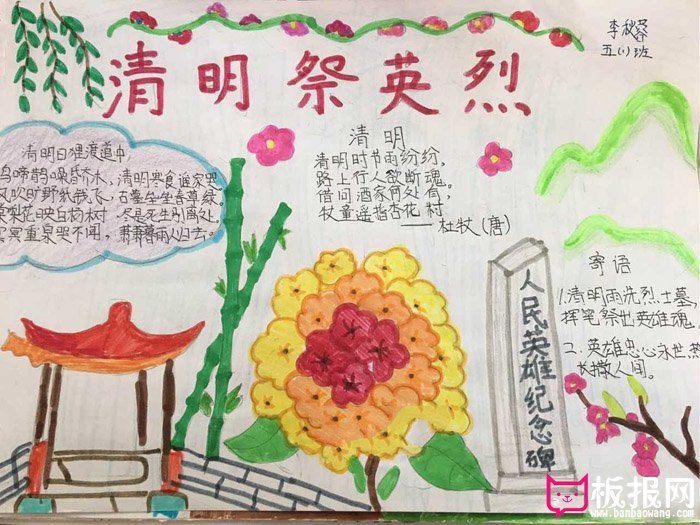 李秋蓉
五(1)班
清明祭英烈
清明日狸渡道中
鸟啼鹊噪昏乔木,清明寒食谁家哭
风吹旷野纸钱飞,古墓垒垒春草绿。
棠梨花映白杨树,尽是死生别离处。
冥冥重泉哭不闻,萧萧暮雨人归去。
清明
清明时节雨纷纷,
路上行人欲断魂。
借问酒家何处有,
牧童遥指杏花村
——杜牧(唐)
人民英雄纪念碑
寄语
1.清明雨洗烈士墓,
挥笔祭出英雄魂。
二.英雄忠心永世
长撒人间。
板报网
www.banbaowang.com